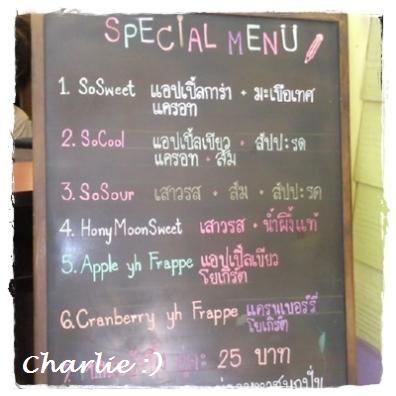 SPECIAL MENU
1. SoSweet แอปเปิ้ลกาล่า + มะเขือเทศ
แครอท
2. SoCool แอปเปิ้ลเขียว + สัปปะรด
แครอท + ส้ม
3. SoSour เสาวรส + ส้ม + สัปปะรด
4. HonyMoonSweet เสาวรส + น้ำผึ้งแท้
5. Apple yh Frappe แอปเปิ้ลเขียว
โยเกิร์ต
6. Cranberry yh Frappe แครนเบอร์รี่
โยเกิร์ต
25 บาท
Charlie :)